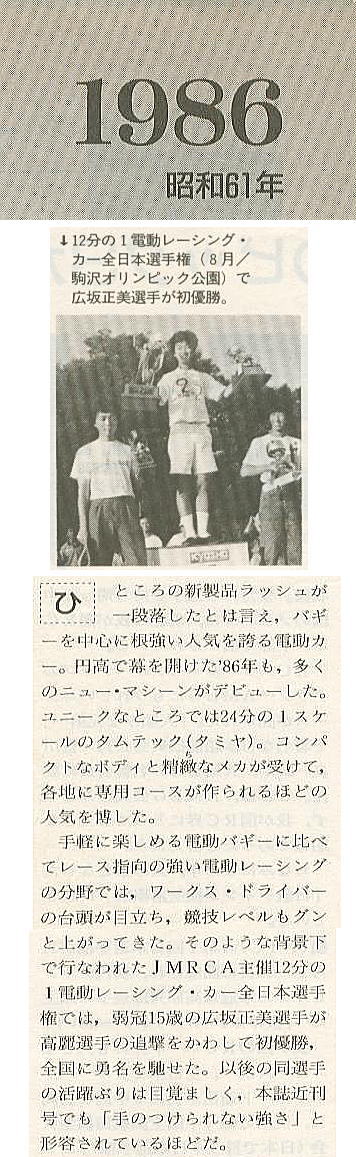 1986
昭和61年
↓12分の１電動レーシング・
カー全日本選手権（８月／
駒沢オリンピック公園）で
広坂正美選手が初優勝。
KYOSHO
ひところの新製品ラッシュが
一段落したとは言え，バギ
ーを中心に根強い人気を誇る電動カ
ー。円高で幕を開けた'86年も，多く
のニュー・マシーンがデビューした。
ユニークなところでは24分の１スケ
ールのタムテック(タミヤ)。コンパ
クトなボディと精緻なメカが受けて，
各地に専用コースが作られるほどの
人気を博した。
手軽に楽しめる電動バギーに比べ
てレース指向の強い電動レーシング
の分野では，ワークス・ドライバー
の台頭が目立ち，競技レベルもグン
と上がってきた。そのような背景下
で行なわれたＪＭＲＣＡ主催12分の
１電動レーシング・カー全日本選手
権では，弱冠15歳の広坂正美選手が
高麗選手の追撃をかわして初優勝，
全国に勇名を馳せた。以後の同選手
の活躍ぶりは目覚ましく，本誌近刊
号でも「手のつけられない強さ」と
形容されているほどだ。